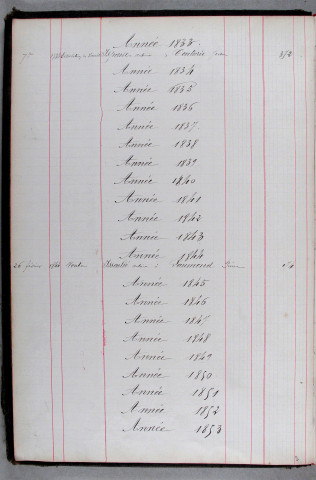 Année 1833.
372
Année 1834
Année 1835
Année 1836
Année 1837
Année 1838
Année 1839
Année 1840
Année 1841
Année 1842
Année 1843
Année 1844
26
Année 1845
Année 1846
Année 1847
Année 1848
Année 1849
Année 1850
Année 1851
Année 1852
Année 1853